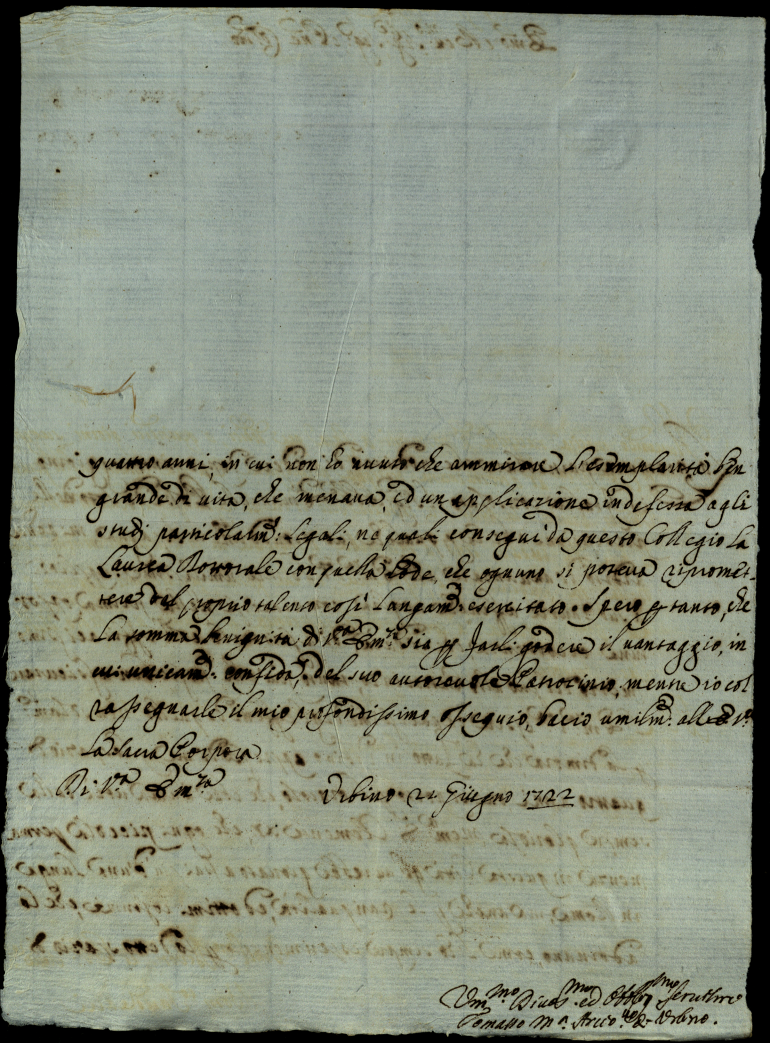 quattro anni, in cui non hò avuto che ammirare l'esemplarità ben
grande di vita, che menava, ed un applicazione indefessa agli
studj particolarm.e Legali, ne quali consegui da questo Collegio la
Laurea Dottorale con quella lode, che ognuno si poteva ripromet-
tere del proprio talento così lungam.e esercitato. Spero p tanto, che
la somma benignità di V.ra Em.za sia p farli godere il vantaggio, in
cui unicam.e confida, del suo autorevole Patrocinio, mentre io col
rassegnarle il mio profondissimo ossequio, bacio umilm.e all' E. V.
la sacra Porpora
Di V.ra Em.za Urbino 21 Giugno 1722
Um.mo Divot.mo ed Obblig.mo Servitore
Tomasso M.a Arciv.o d'Urbino.